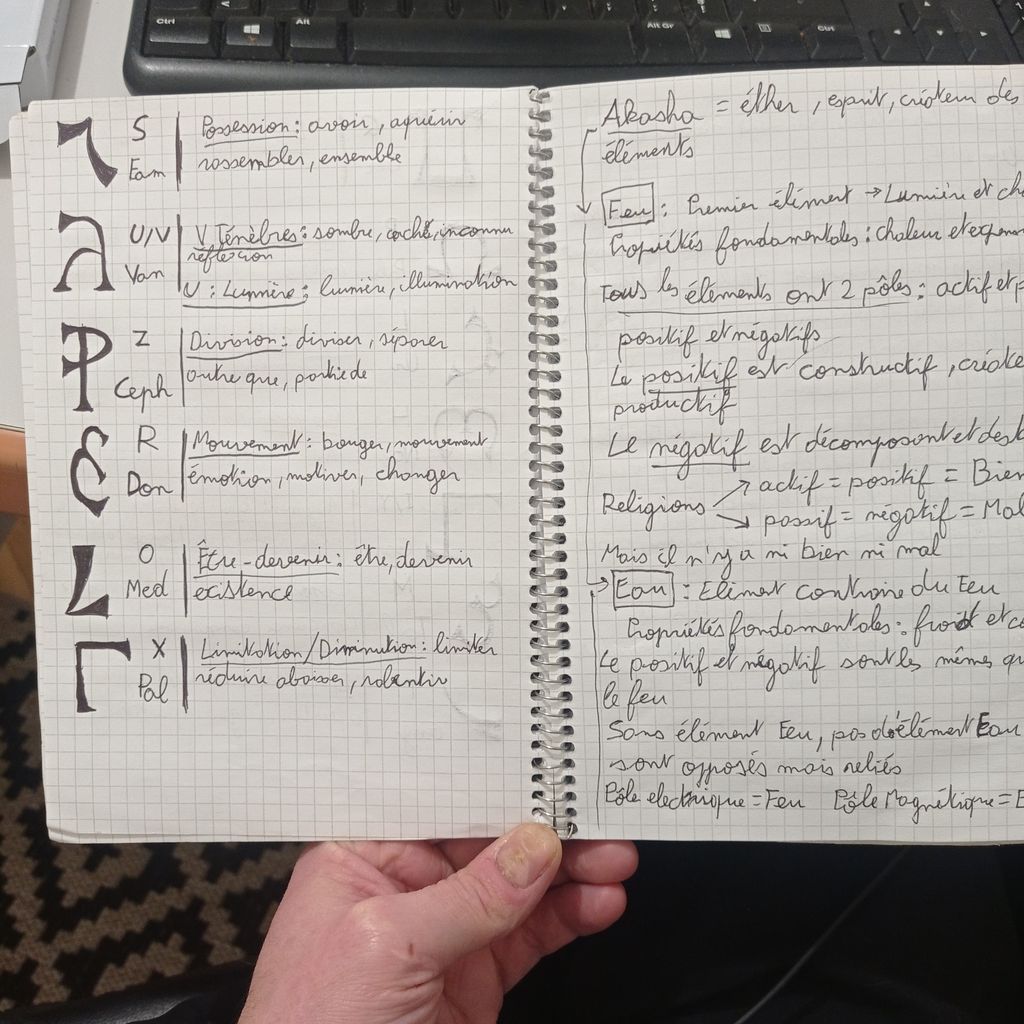 Ctrl
Alt
Alt Gr
Ctrl
S
Eam
Possession : avoir, aquérir
rassembler, ensemble
U/V
Van
V Ténèbres : sombre, caché, inconnu
réflexion
U : Lumière : lumière, illumination
Z
Ceph
Division : diviser, séparer
outre que, partie de
R
Don
Mouvement : bouger, mouvement
émotion, motiver, changer
O
Med
Être-devenir : être, devenir
existence
X
Pal
Limitation/Diminution : limiter
réduire abaisser, ralentir
Akasha = éther, esprit, créateur des
éléments
Feu : Premier élément → Lumière et
Propriétés fondamentales : chaleur et
Tous les éléments ont 2 pôles : actif et
positif et négatifs
Le positif est constructif,
productif
Le négatif est décomposant et
Religions → actif = positif = Bien
→ passif = négatif = Mal
Mais il n'y a ni bien ni mal
Eau : Elément contraire du Feu
Propriétés fondamentales : froid et
Le positif et négatif sont les mêmes
le feu
Sans élément Feu, pas d'élément Eau
sont opposés mais reliés
Pôle electrique = Feu Pôle Magnétique =